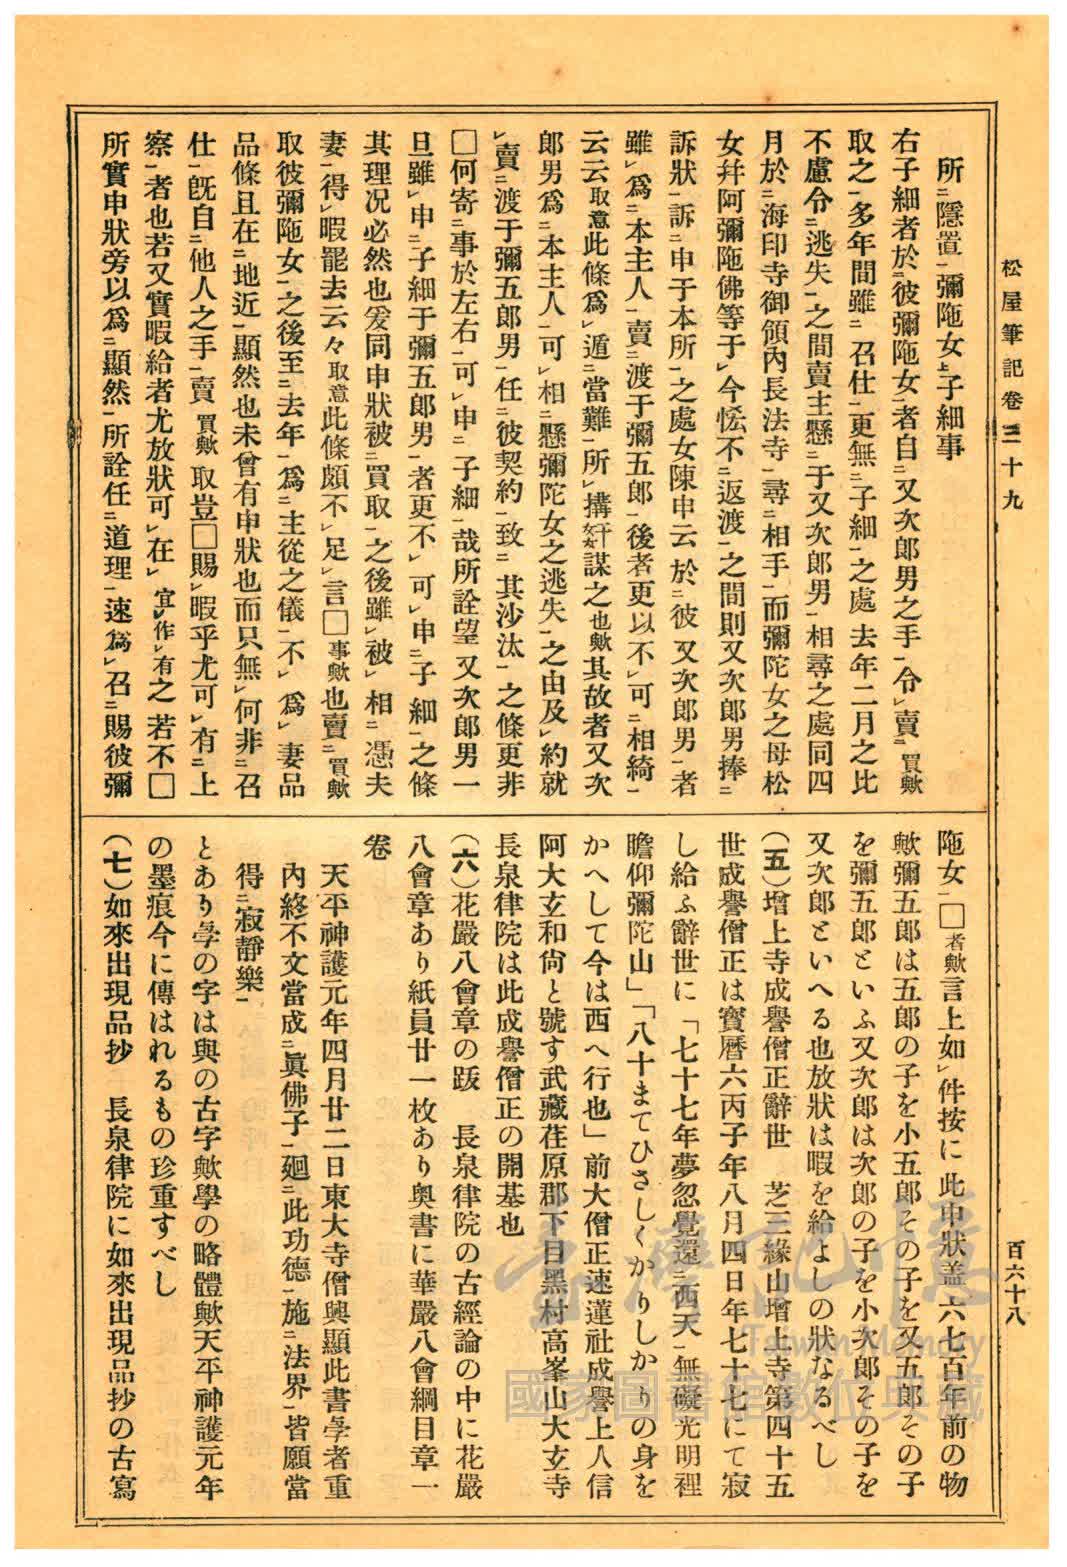 松屋筆記卷三十九
百六十八
所ニ隱置一彌陁女上子細事
右子細者於ニ彼彌陁女一者自ニ又次郎男之手一令レ賣ニ買歟
取之一多年間雖ニ召仕一更無ニ子細一之處去年二月之比
不慮令ニ逃失一之間賣主懸ニ于又次郎男一相尋之處同四
月於ニ海印寺御領內長法寺一尋ニ相手一而彌陀女之母松
女幷阿彌陁佛等于レ今悋不ニ返渡一之間則又次郎男捧ニ
訴狀一訴ニ申于本所一之處女陳申云於ニ彼又次郎男一者
雖レ爲ニ本主人一賣ニ渡于彌五郎一後者更以不レ可ニ相綺一
云云取意此條爲レ遁ニ當難一所レ搆奸謀之也歟其故者又次
郎男爲ニ本主人一可レ相ニ懸彌陀女之逃失一之由及レ約就
レ賣ニ渡于彌五郎男一任ニ彼契約一致ニ其沙汰一之條更非
□何寄ニ事於左右一可レ申ニ子細一哉所詮望又次郎男一
旦雖レ申ニ子細于彌五郎男一者更不レ可レ申ニ子細一之條
其理况必然也爰同申狀被ニ買取一之後雖レ被レ相ニ憑夫
妻一得レ暇罷去云々取意此條頗不レ足レ言□事歟也賣ニ買歟
取彼彌陁女一之後至ニ去年一爲ニ主從之儀一不レ爲レ妻品
品條且在ニ地近一顯然也未曾有申狀也而只無レ何非ニ召
仕一旣自ニ他人之手一賣買歟取豈□賜レ暇乎尤可レ有ニ上
察一者也若又實暇給者尤放狀可レ在レ宜レ作レ有之若不□
所實申狀旁以爲ニ顯然一所詮任ニ道理一速爲レ召ニ賜彼彌
陁女一□者歟言上如レ件按に此申狀蓋六七百年前の物
歟彌五郎は五郎の子を小五郎その子を又五郎その子
を彌五郎といふ又次郎は次郎の子を小次郎その子を
又次郎といへる也放狀は暇を給よしの狀なるべし
(五)增上寺成譽僧正辭世　芝三緣山增上寺第四十五
世成譽僧正は寶曆六丙子年八月四日年七十七にて寂
し給ふ辭世に「七十七年夢忽覺還ニ西天一無礙光明裡
瞻仰彌陀山」「八十まてひさしくかりしかりの身を
かへして今は西へ行也」前大僧正速蓮社成譽上人信
阿大玄和尙と號す武藏荏原郡下目黑村高峯山大玄寺
長泉律院は此成譽僧正の開基也
(六)花嚴八會章の跋　長泉律院の古經論の中に花嚴
八會章あり紙員廿一枚あり奥書に華嚴八會綱目章一
卷
天平神護元年四月廿二日東大寺僧興顯此書㝯者重
內終不文當成ニ眞佛子一廻ニ此功德一施ニ法界一皆願當
得ニ寂靜樂一
とあり㝯の字は與の古字歟學の略體歟天平神護元年
の墨痕今に傳はれるもの珍重すべし
(七)如來出現品抄　長泉律院に如來出現品抄の古寫
臺灣記憶
Taiwan Memory
國家圖書館數位典藏